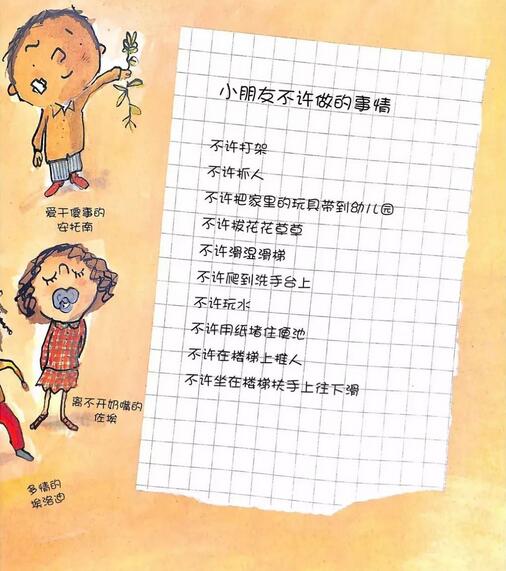 小朋友不许做的事情
不许打架
不许抓人
不许把家里的玩具带到幼儿园
不许拔花花草草
不许滑湿滑梯
不许爬到洗手台上
不许玩水
不许用纸堵住便池
不许在楼梯上推人
不许坐在楼梯扶手上往下滑
爱干傻事的
安托南
离不开奶嘴的
佐埃
多情的
埃洛迪